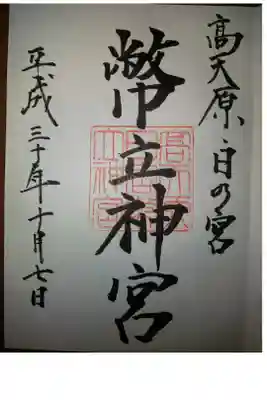 高天原・日の宮
幣立神宮
平成三十年十月七日